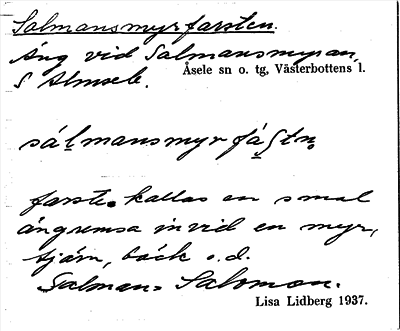 Salmansmyrfarsten.
Äng vid Salmansmyran,
S Almsele.
Åsele sn o. tg, Västerbottens l.
sálmansmyrfáʃtn̥
farste kallas en smal
ängremsa invid en myr,
tjärn, bäck o.d.
Salman = Salomon.
Lisa Lidberg 1937.